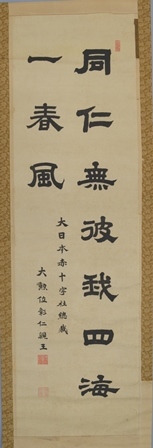 同仁無彼我四海
一春風
大日本赤十字社總裁
大勲位彰仁親王